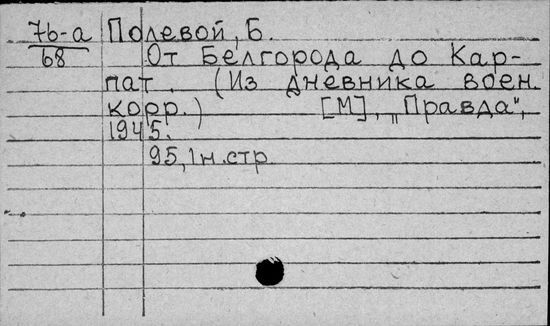 76-а Полевой, Б.
68 От Белгорода до Кар-
пат. (Из дневника воен.
корр.) [М], „Правда",
1945.
95, 1 н. стр